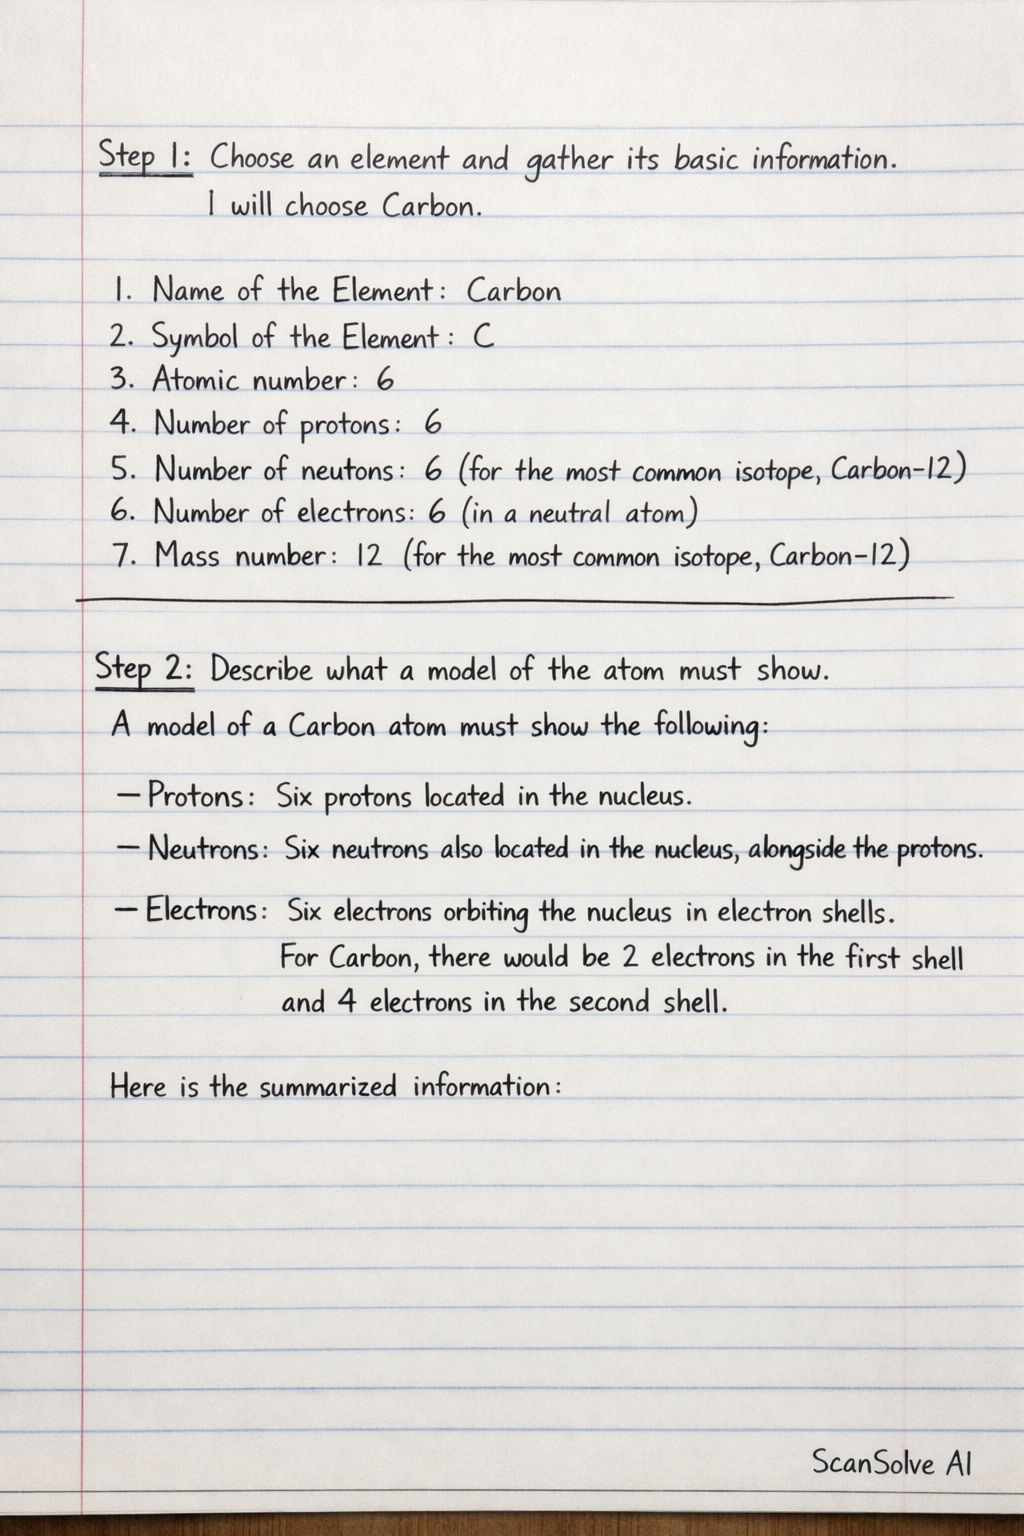 Step 1: Choose an element and gather its basic information.
I will choose Carbon.
1. Name of the Element: Carbon
2. Symbol of the Element: C
3. Atomic number: 6
4. Number of protons: 6
5. Number of neutons: 6 (for the most common isotope, Carbon-12)
6. Number of electrons: 6 (in a neutral atom)
7. Mass number: 12 (for the most common isotope, Carbon-12)
Step 2: Describe what a model of the atom must show.
A model of a Carbon atom must show the following:
— Protons: Six protons located in the nucleus.
— Neutrons: Six neutrons also located in the nucleus, alongside the protons.
— Electrons: Six electrons orbiting the nucleus in electron shells.
For Carbon, there would be 2 electrons in the first shell
and 4 electrons in the second shell.
Here is the summarized information:
ScanSolve AI